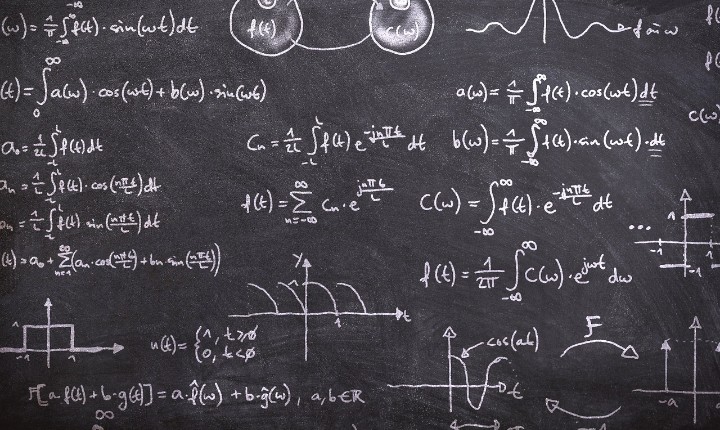 (ω) = 1/π ∫_{-∞}^{∞} f(t)·sin(ωt)dt
f(t)
C(ω)
f sin ω
(t) = ∫_0^∞ a(ω)·cos(ωt) + b(ω)·sin(ωt)
a(ω) = 1/π ∫_{-∞}^{∞} f(t)·cos(ωt)dt
C(ω)
a₀ = 1/2L ∫_{-L}^{L} f(t)dt
Cn = 1/2L ∫_{-L}^{L} f(t) e^{-jnπt/L} dt
b(ω) = 1/π ∫_{-∞}^{∞} f(t)·sin(ωt)·dt
an = 1/L ∫_{-L}^{L} f(t)·cos(nπt/L)dt
f(t) = ∑_{n=-∞}^{∞} Cn·e^{jnπt/L}
C(ω) = ∫_{-∞}^{∞} f(t)·e^{-jnπt/L} dt
bn = 1/L ∫_{-L}^{L} f(t) sin(nπt/L)dt
...
1
-1
1
(t) = a₀ + ∑_{n=1}^{∞} (an·cos(nπt/L) + bn·sin(nπt/L))
f(t) = 1/2π ∫_{-∞}^{∞} C(ω)·e^{jωt} dω
y
t
1
1
-1
1
u(t) = {1, t≥0
0, t<0
cos(at)
t
F
-a
F[a·f(t) + b·g(t)] = a·f̂(ω) + b·ĝ(ω), a,b∈ℝ
∞